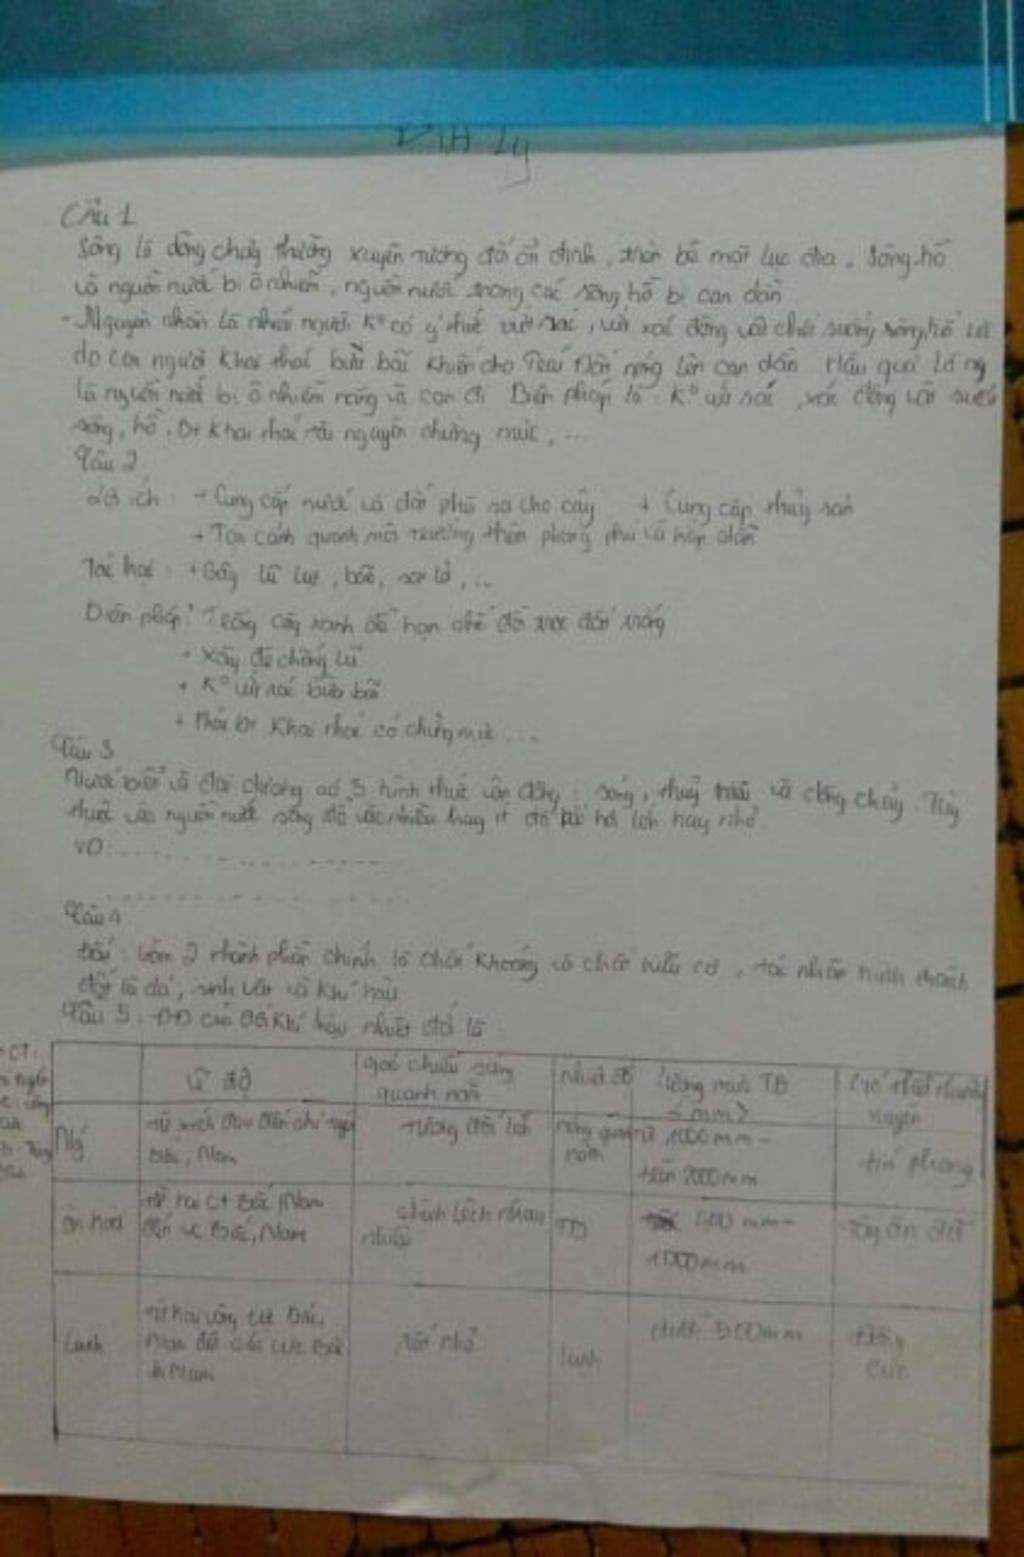 Địa Lý
Câu 1
Sông là dòng chảy thường xuyên tương đối ổn định, trên bề mặt lục địa. Sông, hồ
và nguồn nước bị ô nhiễm, nguồn nước trong các sông hồ bị cạn dần
- Nguyên nhân là nhiều người K° có ý thức vứt rác, vứt xác động vật chết xuống sông, hồ và
do con người khai thác bừa bãi khiến cho Trái Đất nóng lên cạn dần Hậu quả là
là nguồn nước bị ô nhiễm nặng và cạn đi Biện pháp là: K° vứt rác, xác động vật xuống
sông, hồ. Khai thác tài nguyên chừng mực, ...
Câu 2
Lợi ích: + Cung cấp nước và đất phù sa cho cây + Cung cấp thủy sản
+ Tạo cảnh quanh môi trường thêm phong phú và hấp dẫn
Tác hại: + Gây lũ lụt, bão, sạt lở, ...
Biện pháp: Trồng cây xanh để hạn chế đồi trọc đất trống
+ Xây đê chống lũ
+ K° vứt rác bừa bãi
+ Phải khai thác có chừng mực ...
Câu 3
Nước biển và đại dương có 3 hình thức vận động: sóng, thủy triều và dòng chảy. Tùy
thuộc vào nguồn nước sông đổ vào nhiều hay ít, độ bốc hơi lớn hay nhỏ
VD: ..........
Câu 4
Đất: Gồm 2 thành phần chính là chất khoáng và chất hữu cơ, tác nhân hình thành
đất là đá, sinh vật và khí hậu
Câu 5: ĐĐ của đới khí hậu nhiệt đới là:
Vĩ độ góc chiếu sáng quanh năm nhiệt độ lượng mưa TB <mm> Gió thổi thường xuyên
từ xích đạo đến chí tuyến Bắc, Nam tương đối lớn nóng quanh năm từ 1000mm - trên 2000mm tín phong
ôn hoà từ hai CT Bắc, Nam đến VC Bắc, Nam chênh lệch nhau nhiều TB 500 mm - 1000mm Tây ôn đới
Lạnh từ hai vòng cực Bắc, Nam đến các cực Bắc và Nam rất nhỏ lạnh dưới 500mm Đông cực
CT: